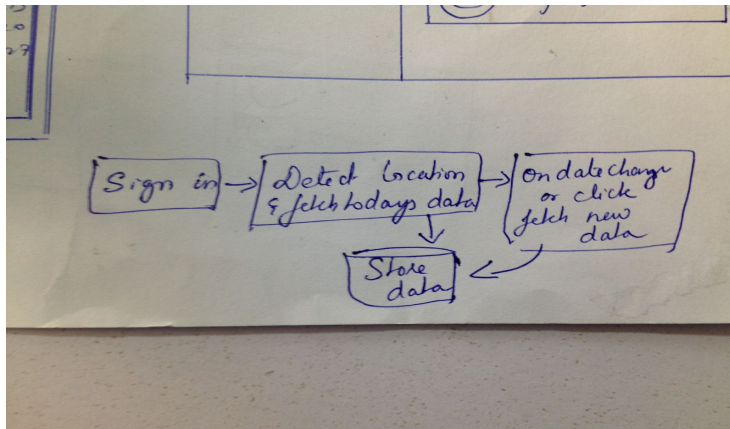 27
Sign in
Detect location
& fetch todays data
On date change
or click
fetch new
data
Store
data